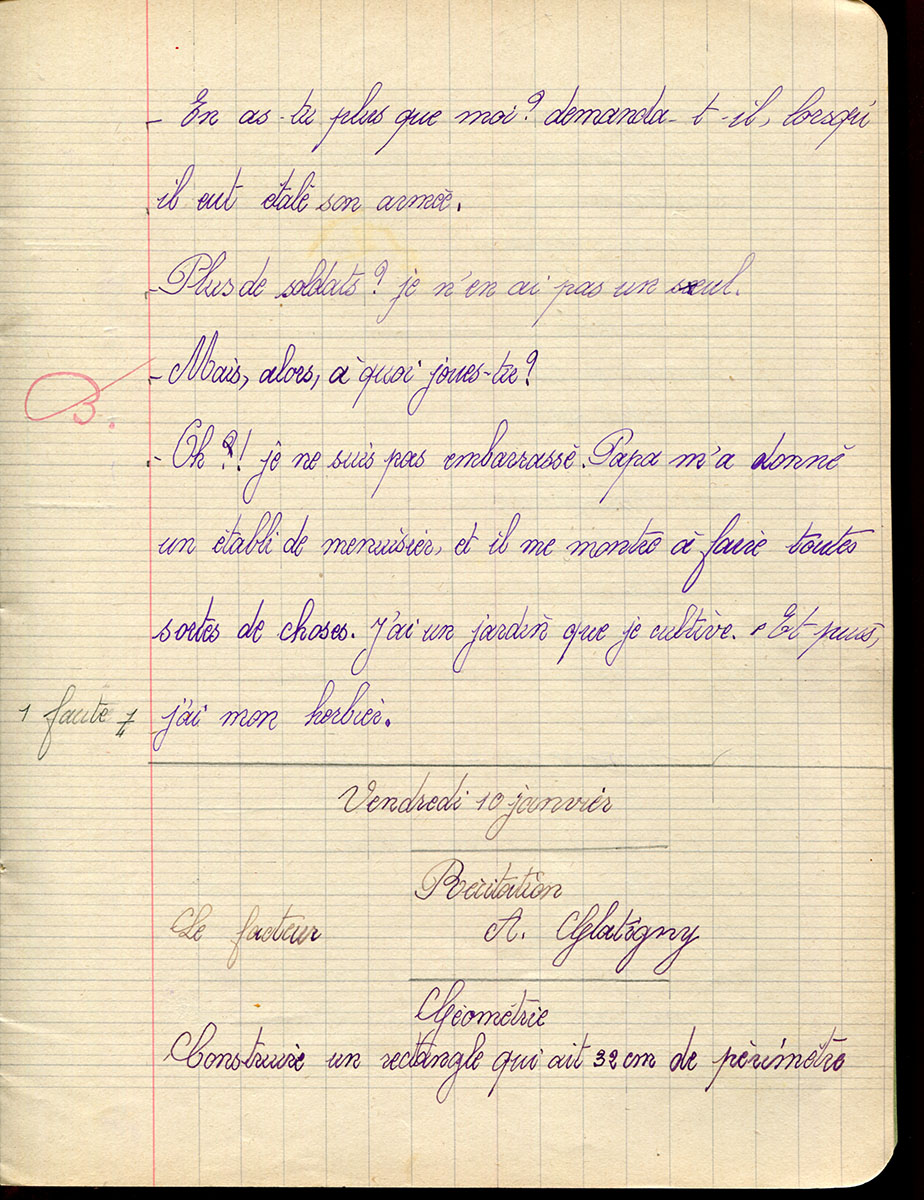 - En as-tu plus que moi? demanda-t-il, lorsqu'
il eut étalé son armée.
- Plus de soldats? je n'en ai pas un seul.
- Mais, alors, à quoi joues-tu?
3.
- Oh ?! je ne suis pas embarrassé. Papa m'a donné
un établi de menuisier, et il me montre à faire toutes
sortes de choses. J'ai un jardin que je cultive. Et puis,
1 faute j'ai mon herbier.
Vendredi 10 janvier
Récitation
Le facteur A. Glatigny
Géométrie
Construire un rectangle qui ait 32 cm de périmètre